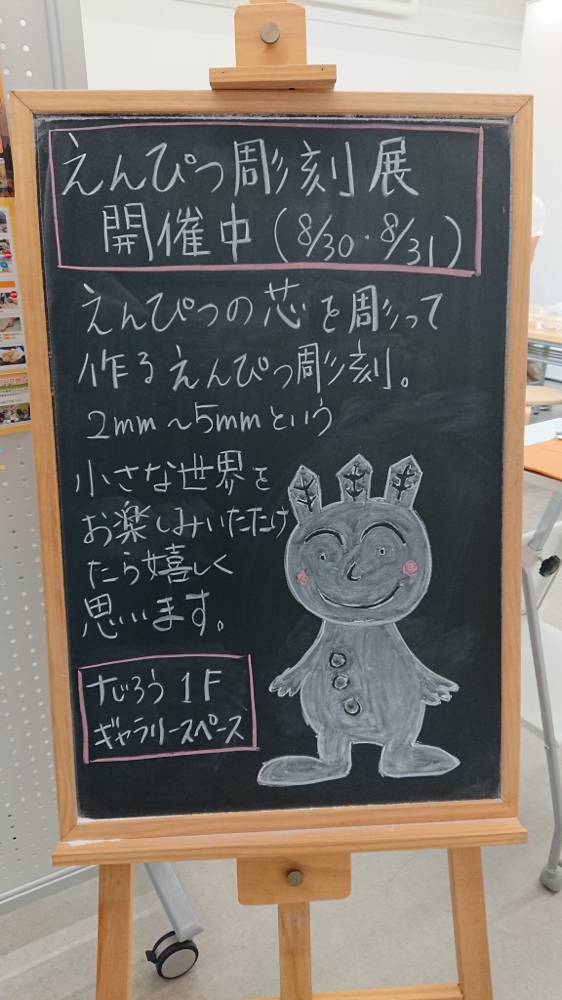 えんぴつ彫刻展
開催中(8/30・8/31)
えんぴつの芯を彫って
作るえんぴつ彫刻。
2mm～5mmという
小さな世界を
お楽しみいただけ
たら嬉しく
思います。
すじろう1F
ギャラリースペース